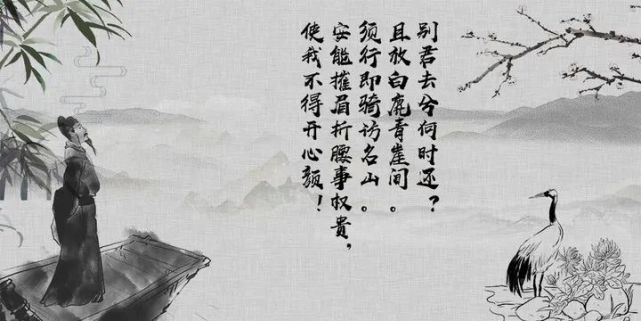 别君去兮何时还？
且放白鹿青崖间。
须行即骑访名山。
安能摧眉折腰事权贵，
使我不得开心颜！